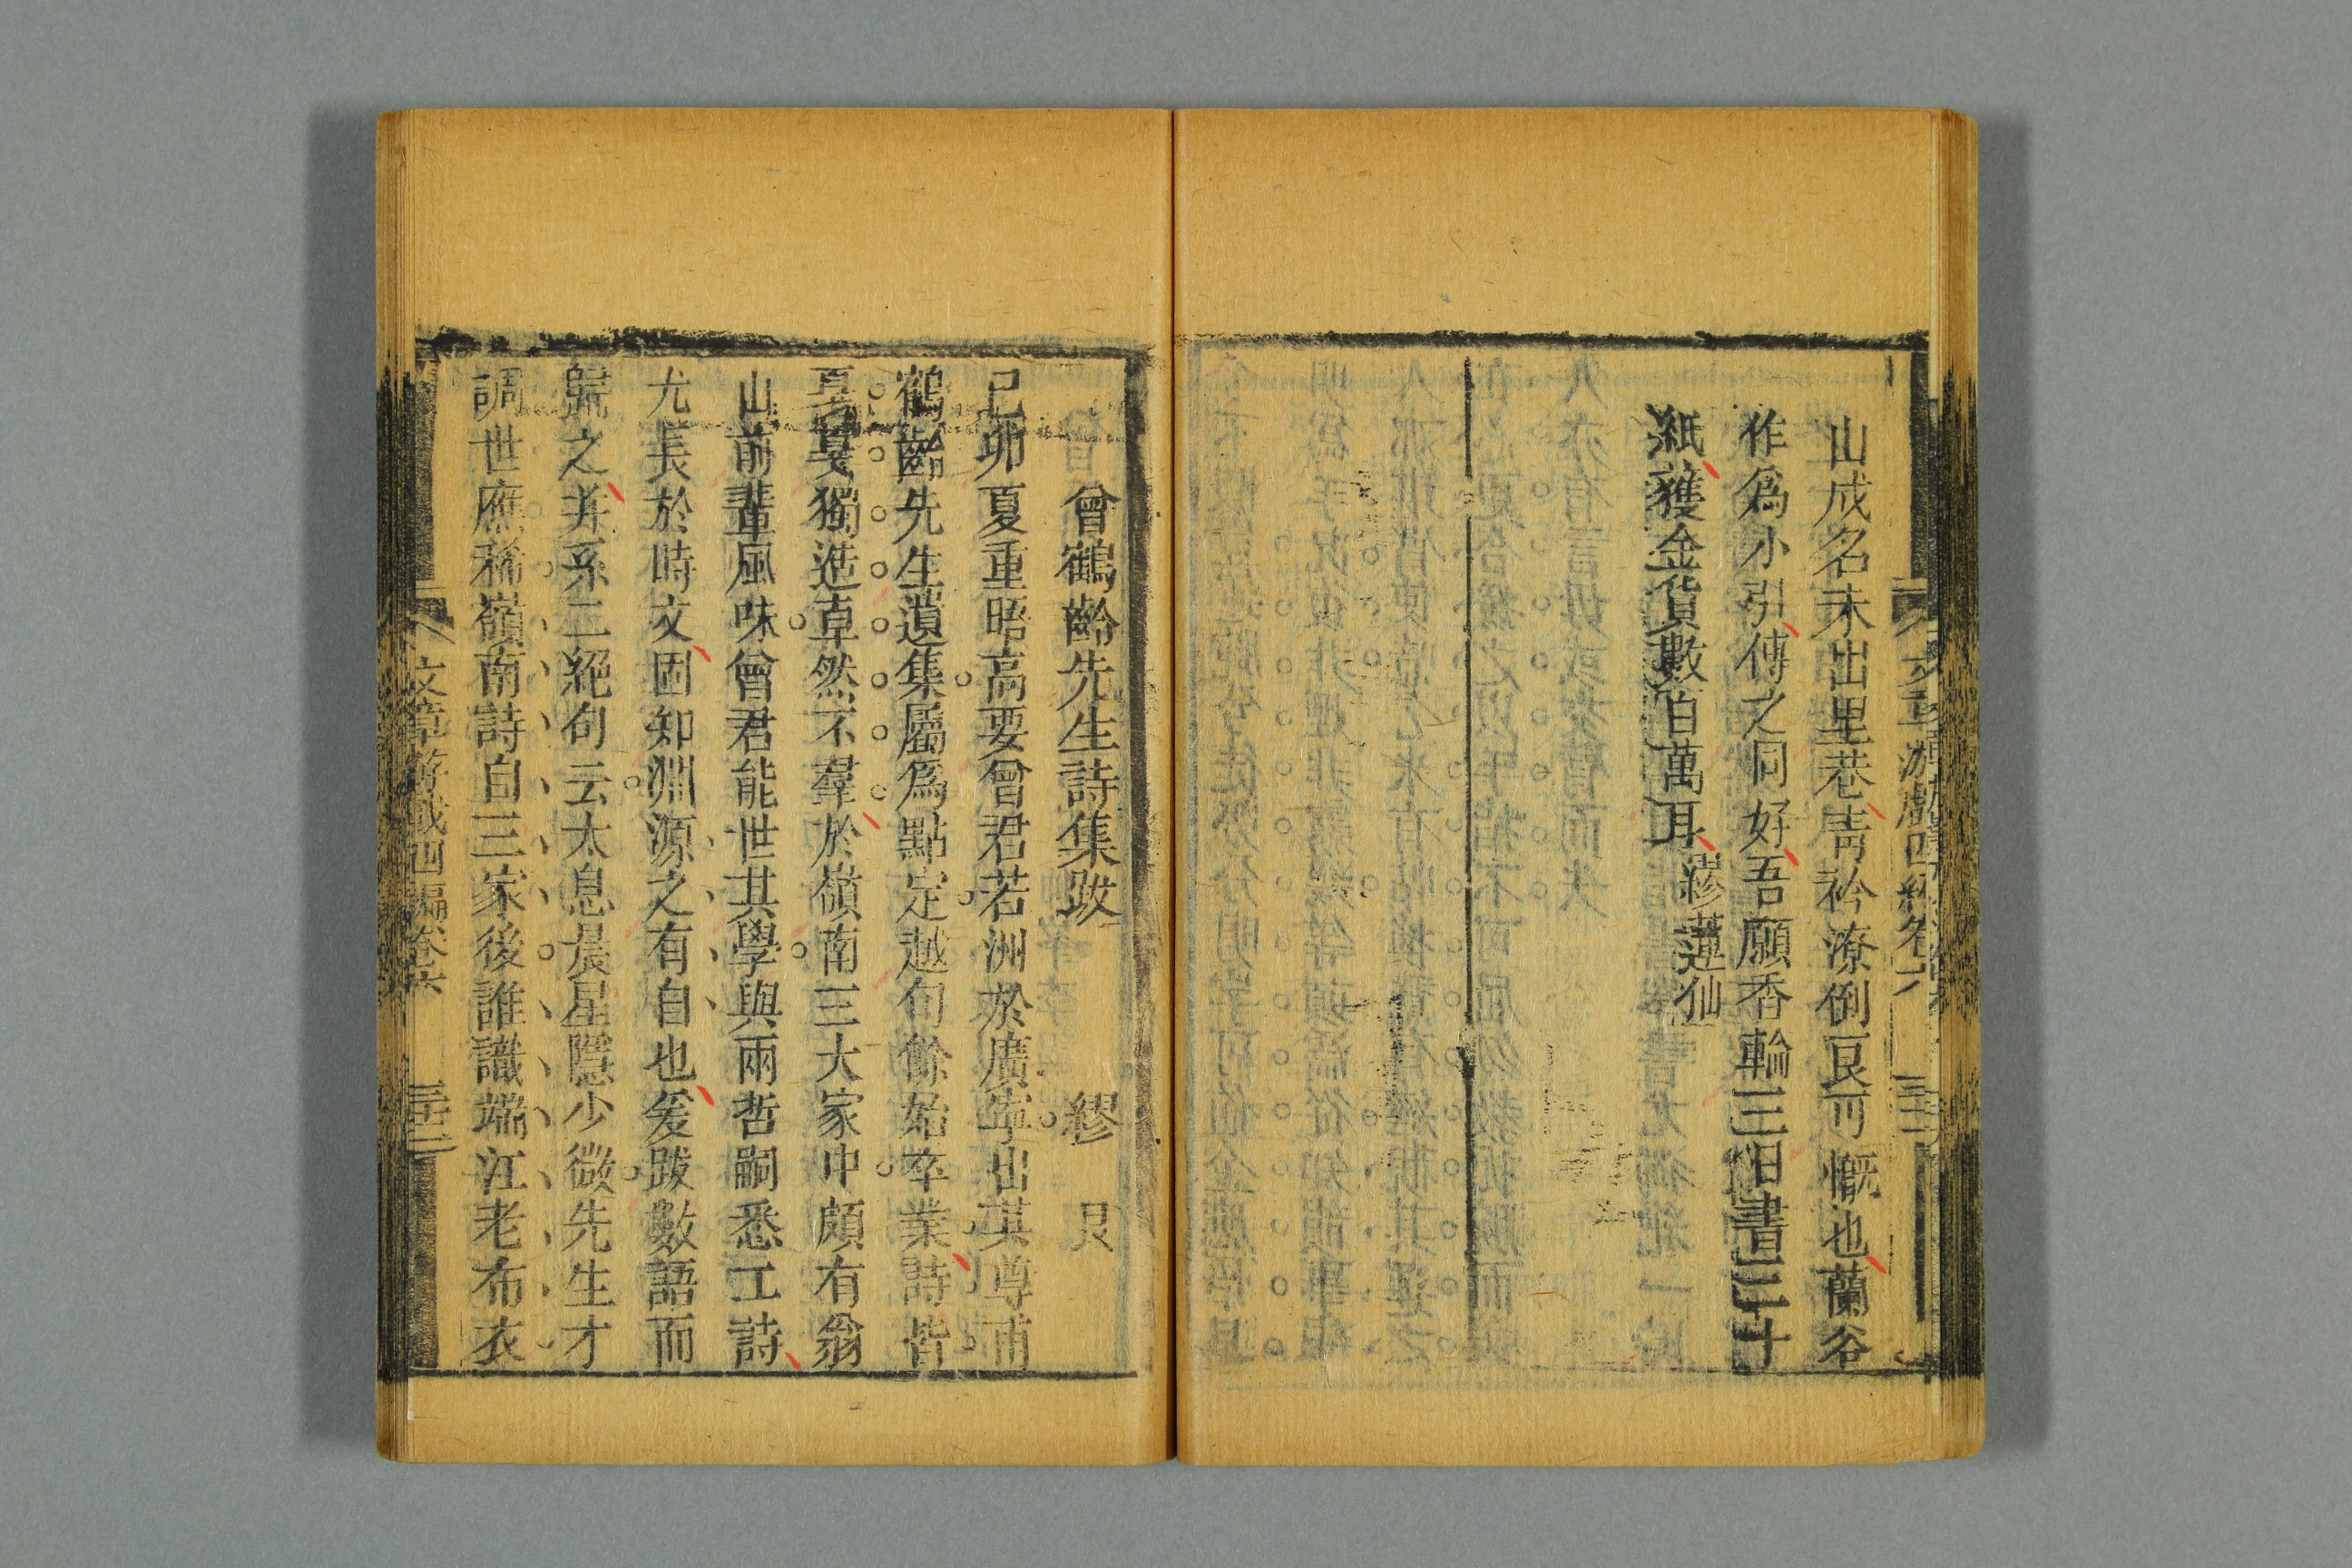 山成名未出里巷靑衿潦倒良可慨也蘭谷
作爲小引傳之同好吾願香輪三日書三十
紙獲金貨數百萬耳繆蓮仙
曾鶴齡先生詩集跋 繆艮
己卯夏重晤高要曾君若洲於廣寧出其尊甫
鶴齡先生遺集屬爲點定越旬餘始卒業詩皆
戛戛獨造卓然不羣於嶺南三大家中頗有翁
山前輩風味曾君能世其學與兩哲嗣悉工詩
尤長於時文固知淵源之有自也爰跋數語而
歸之并系二絕句云太息晨星隱少微先生才
調世應稀嶺南詩自三家後誰識端江老布衣
文章游戲四編卷六 三十二